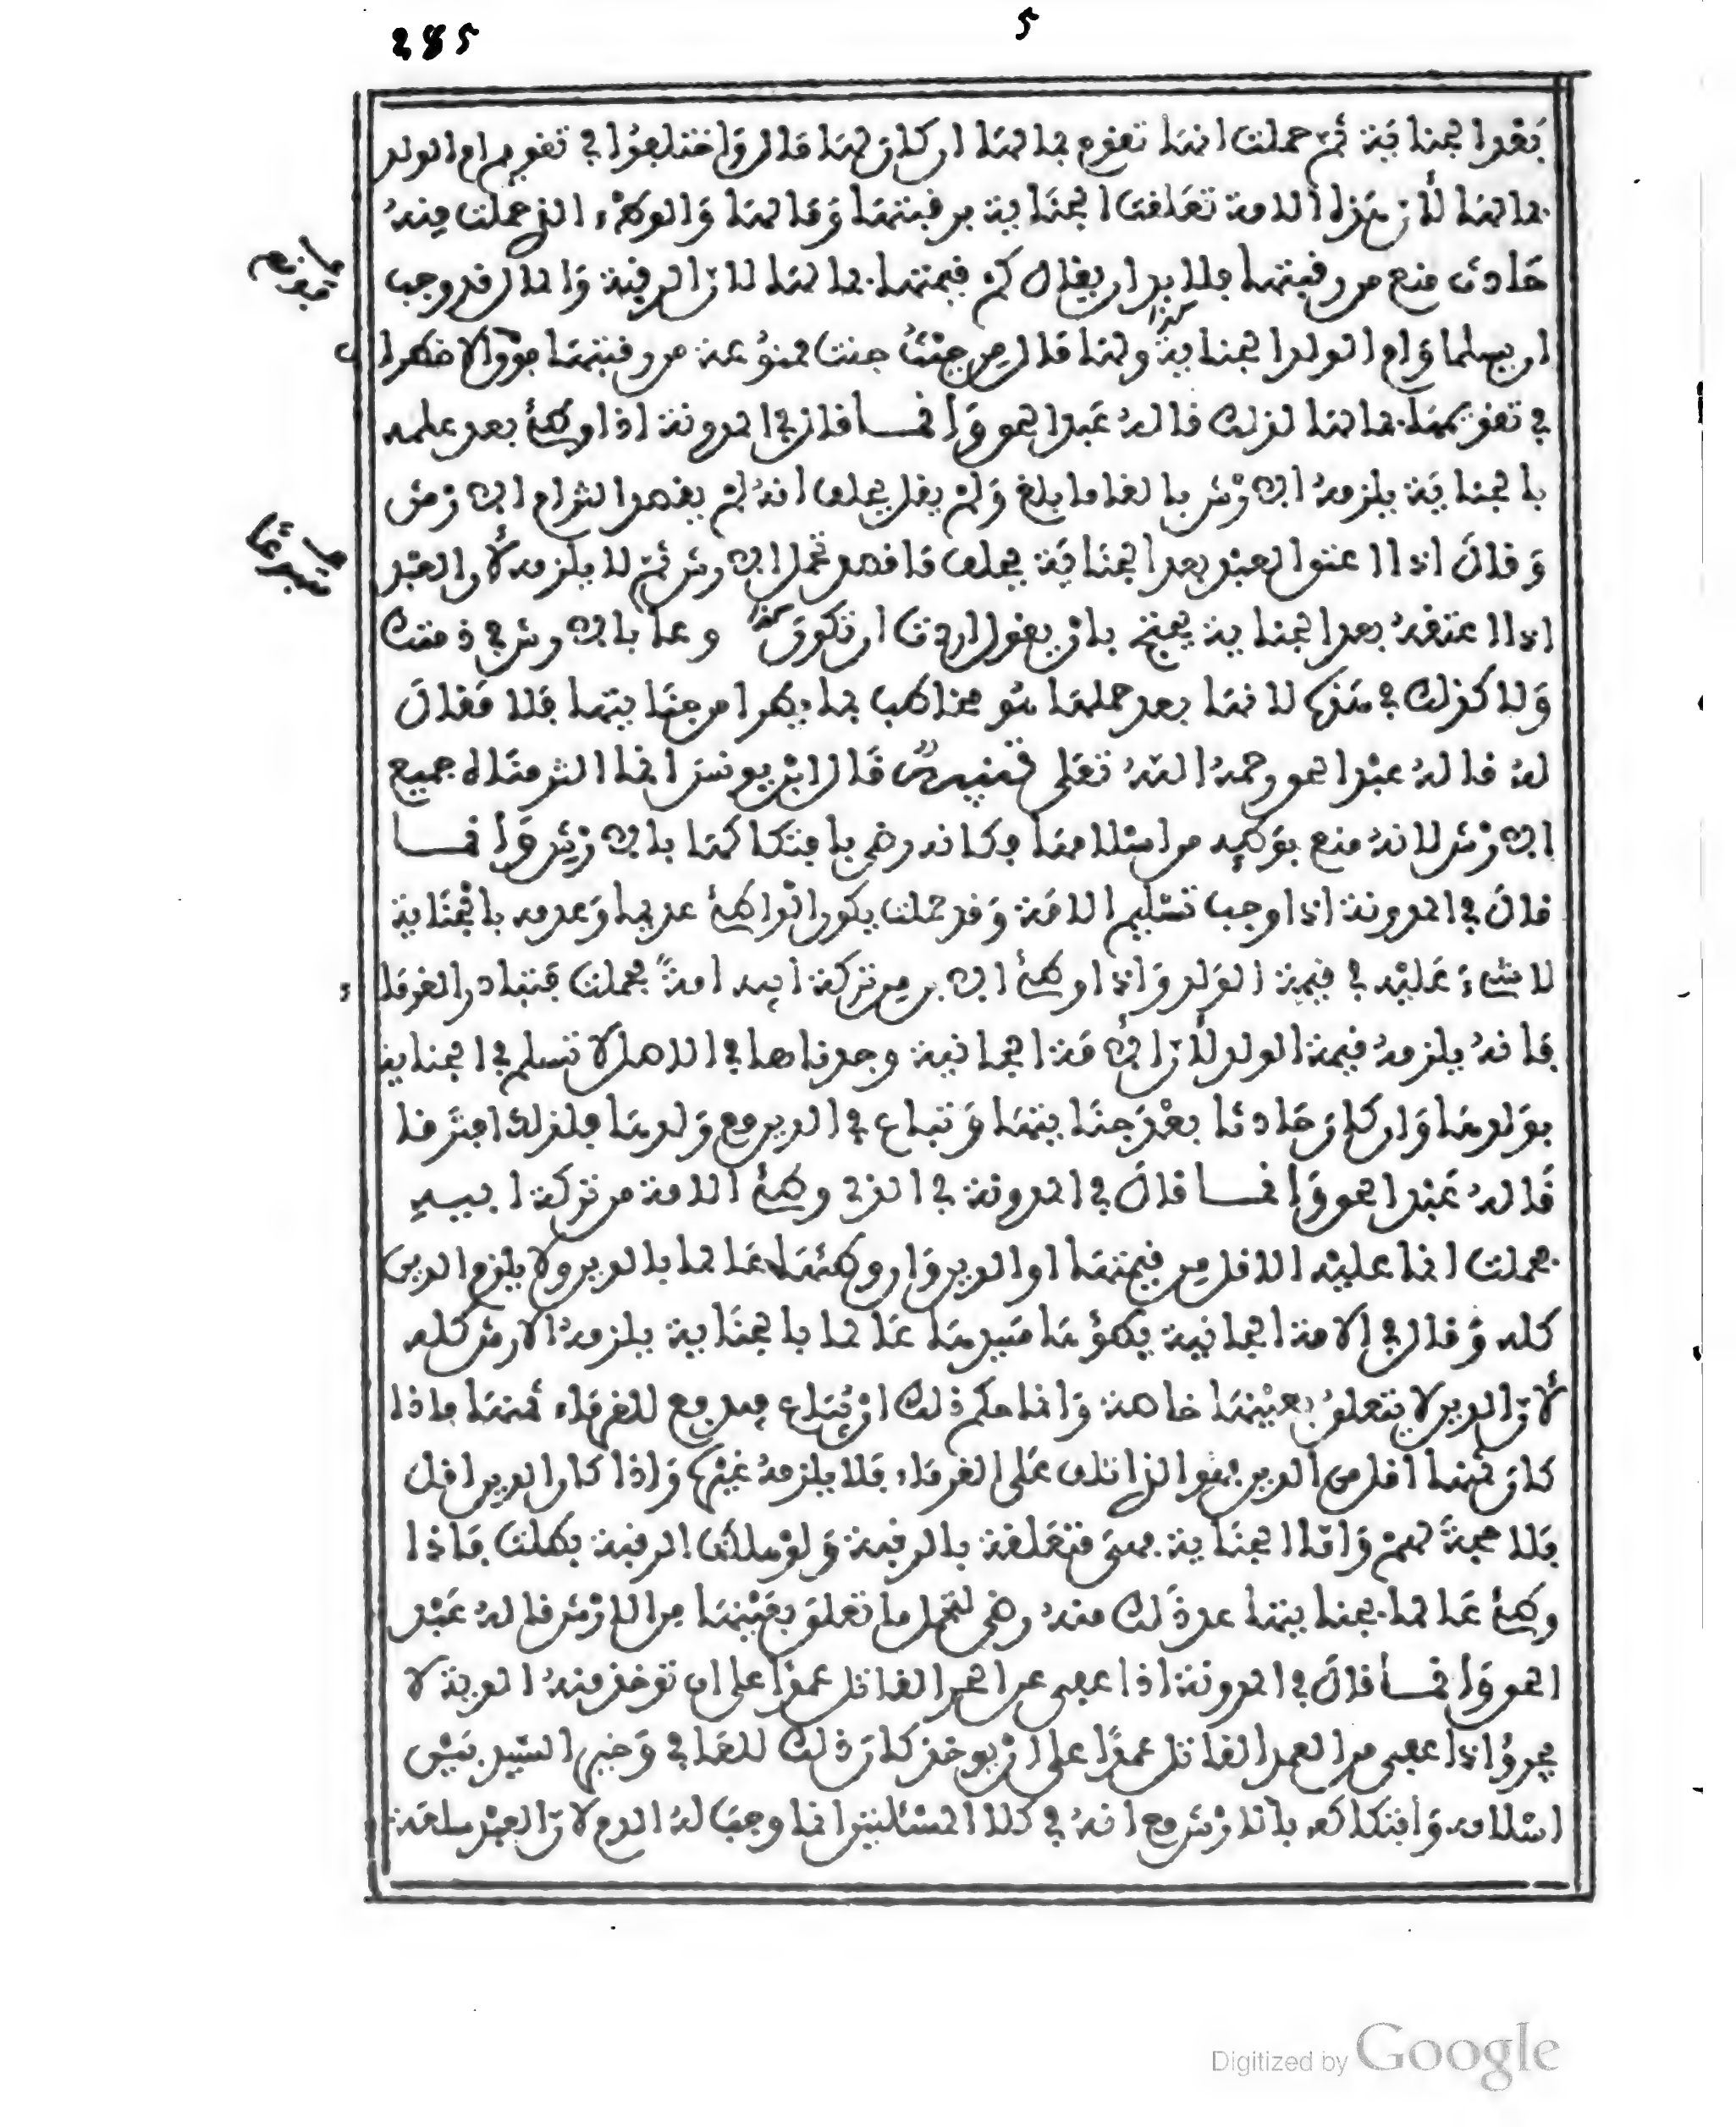 285
5
بعد الجناية ثم حملت انها تقوم بمالها ان كان لها قال واختلفوا في تقويم ام الولد
بمالها لأن هذه الامة تعلقت الجناية برقبتها ومالها والوطء الذي حملت منه
حادث منع من رقبتها فلا بد ان يقال كم قيمتها بمالها لان الرقبة والمال قد وجب
ان يسلما وام الولد الجناية كذا ولها قال من حيث جنت ممنوعة من رقبتها
في تقويمها بمالها لذلك قاله عبد الحق وانما قال في المدونة اذا وطئ بعد علمه
بالجناية يلزمه الارش بالغا ما بلغ ولم يقل يحلف انه لم يقصد التزام الارش
وقال اذا اعتق العبد بعد الجناية يحلف ما قصد تحمل الارش ثم لا يلزمه لأن العبد
اذا اعتقه بعد الجناية يحتج بان يقول اردت ان تكون كذا وعا بالارش في ذمتك
ولا كذلك في هذه لانها بعد حملها هو مخاطب بما يطرا من جنايتها فلا مقال
له قاله عبد الحق رحمه الله تعلى تنبيه قال ابن يونس انما الزمناه جميع
الارش لانه منع بوطيه من اسلامها فكانه رضي بافتكاكها بالارش وانما
قال في المدونة اذا وجب تسليم الامة وقد حملت يكون الواطئ عديما وعدمه بالجناية
لا شيء عليه في قيمة الولد واذا وطئ الابن من تركة ابيه امة فحملت فتبادر الغرماء
فانه يلزمه قيمة الولد لأن الأمة الجانية وجدناها في الاصل لا تسلم في الجناية
بولدها وان كان حادثا بعد جنايتها وتباع في الدين مع ولدها فلذلك افترقا
قاله عبد الحق وانما قال في المدونة في الذي وطئ الامة من تركة ابيه
فحملت انما عليه الاقل من قيمتها او الدين وان وطئها عالما بالدين ولا يلزم الدين
كله وقال في الامة الجانية يطؤها سيدها عالما بالجناية يلزمه الارش كله
لأن الدين لا يتعلق بعينها خاصة وانما حكم ذلك ان تباع فيدفع للغرماء ثمنها فاذا
كان ثمنها اقل من الدين فهو الذي اتلف على الغرماء فلا يلزمه غيرها واذا كان الدين اقل
فلا حجة لهم واما الجناية فهي متعلقة بالرقبة ولو هلكت الرقبة بطلت فاذا
وطئ عالما بجنايتها عد ذلك منه رضى لتحمل ما تعلق بعينها من الارش قاله عبد
الحق وانما قال في المدونة اذا عفى عن الحر القاتل عمدا على ان تؤخذ منه الدية لا
يجوز واذا عفى عن العبد القاتل عمدا على ان يؤخذ كان ذلك للعافي وخير السيد بين
اسلامه وافتكاكه بالارش مع انه في كلا المسئلتين انما وجب له الدم لان العبد سلعة
Digitized by Google